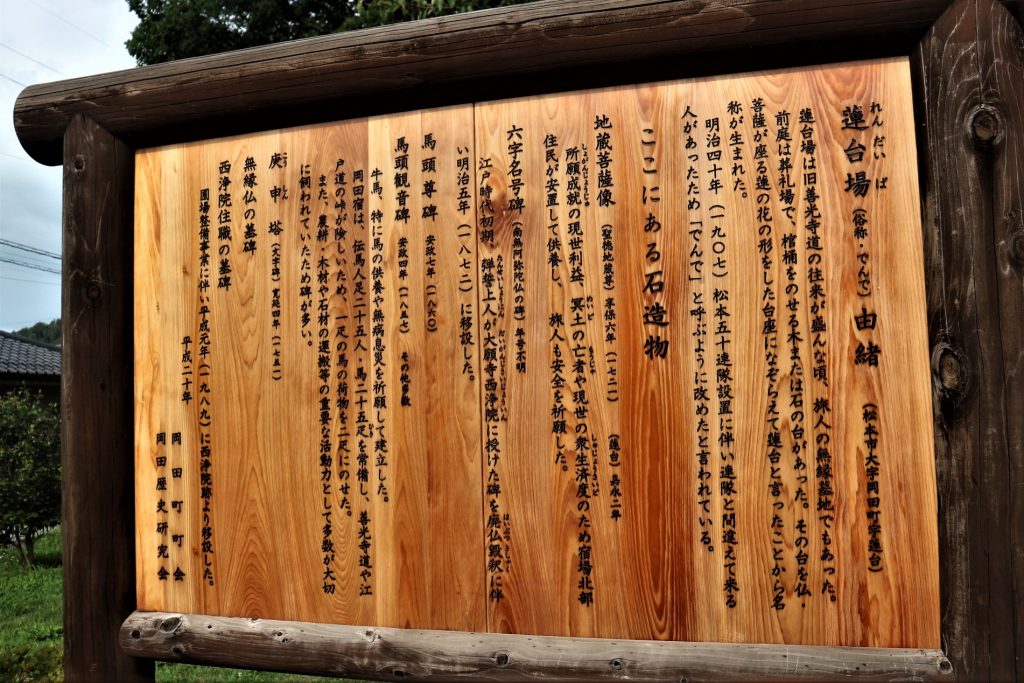 れんだいば
蓮台場(俗称・でんで)由緒 (松本市大字岡田町字蓮台)
蓮台場は旧善光寺道の往来が盛んな頃、旅人の無縁墓地でもあった。
前庭は葬礼場で、棺桶をのせる木または石の台があった。その台を仏・
菩薩が座る蓮の花の形をした台座になぞらえて蓮台と言ったことから名
称が生まれた。
明治四十年(一九〇七)松本五十連隊設置に伴い連隊と間違えて来る
人があったため「でんで」と呼ぶように改めたと言われている。
ここにある石造物
地蔵菩薩像(聖徳地蔵尊)享保六年(一七二一)(蓮台)嘉永二年
しょがんじょうじゅ めいど もうじゃ しゅじょうさいど
所願成就の現世利益、冥土の亡者や現世の衆生済度のため宿場北部
住民が安置して供養し、旅人も安全を祈願した。
六字名号碑(南無阿弥陀仏の碑)年号不明
江戸時代初期、弾誓上人が大願寺西浄院に授けた碑を廃仏毀釈に伴
い明治五年(一八七二)に移設した。
馬頭尊碑 安政七年(一八六〇)
馬頭観音碑 安政四年(一八五七) その他多数
牛馬、特に馬の供養や無病息災を祈願して建立した。
岡田宿は、伝馬人足二十五人・馬二十五疋を常備し、善光寺道や江
戸道の峠が険しいため、一疋の馬の荷物を二疋にのせた。
また、農耕・木材や石材の運搬等の重要な活動力として多数が大切
に飼われていたため碑が多い。
こうしん
庚申塔(文字碑)寛延四年(一七五一)
無縁仏の墓碑
西浄院住職の墓碑
圃場整備事業に伴い平成元年(一九八九)に西浄院跡より移設した。
平成二十年
岡田町町会
岡田歴史研究会